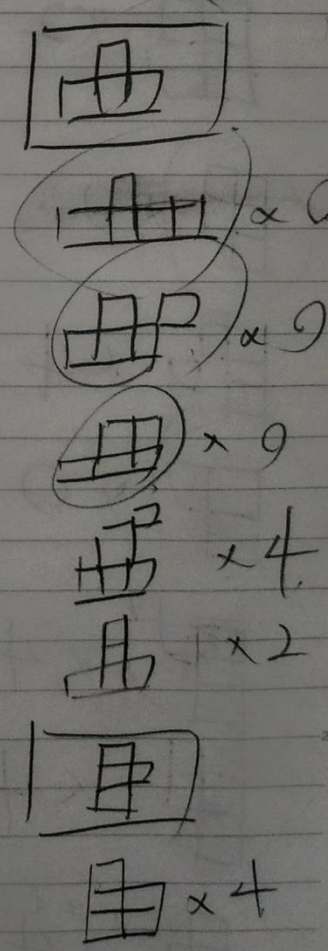 ×
× 9
× 9
× 4
× 2
× 4